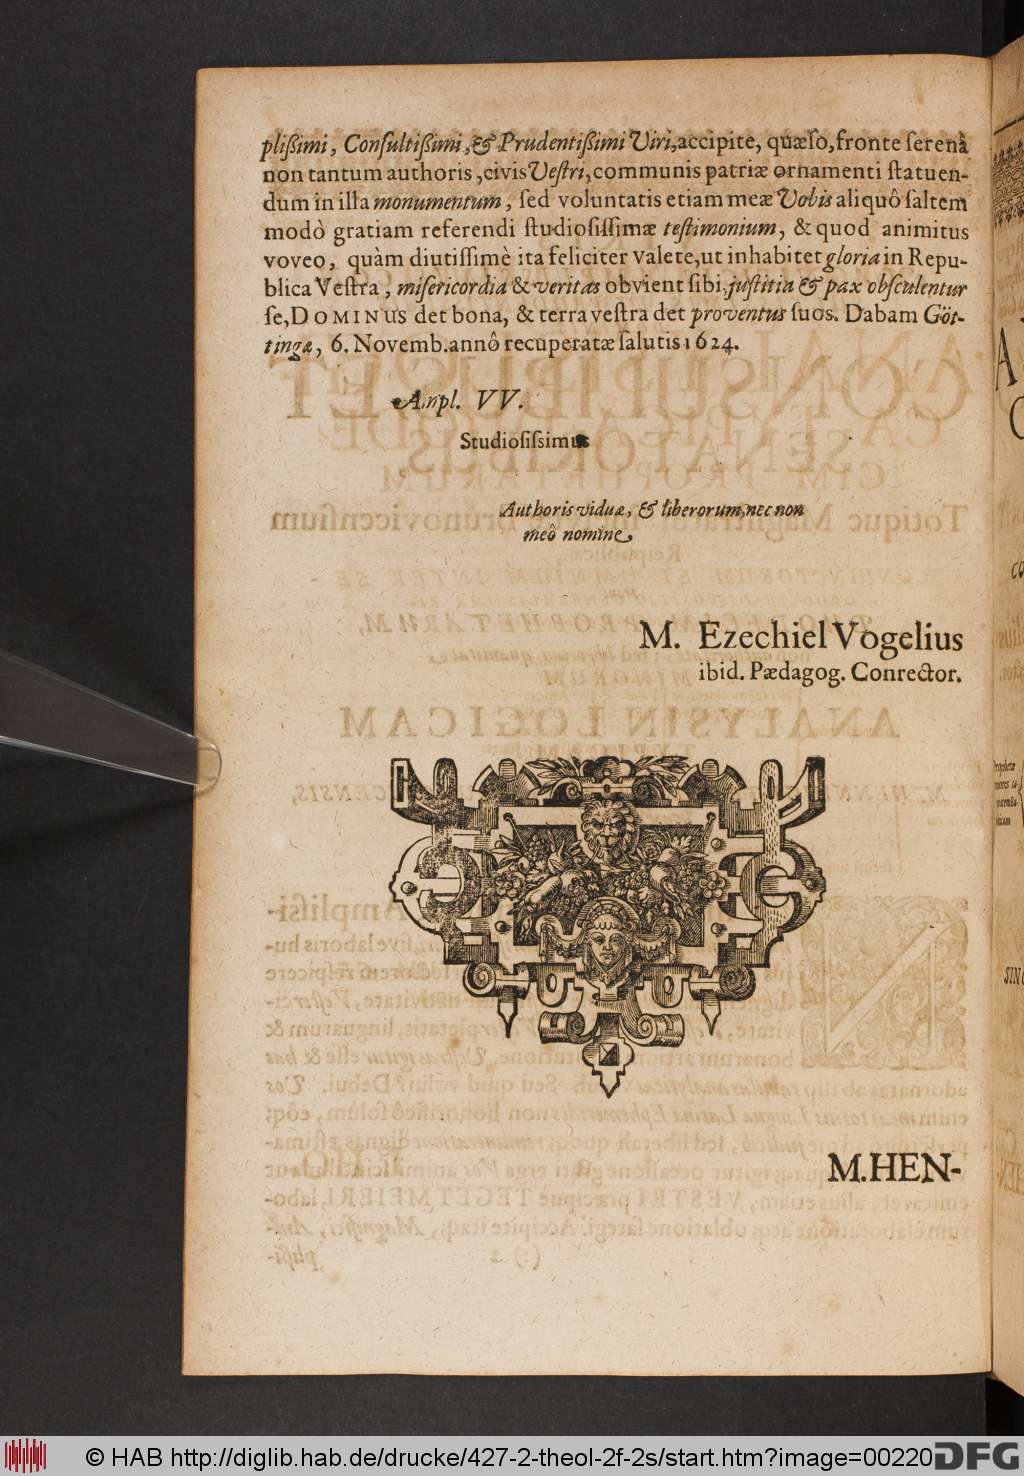 plißimi, Consultißimi, & Prudentißimi Viri, accipite, quæso, fronte serenâ
non tantum authoris, civis Vestri, communis patriæ ornamenti statuen-
dum in illa monumentum, sed voluntatis etiam meæ Vobis aliquô saltem
modò gratiam referendi studiosissimæ testimonium, & quod animitus
voveo, quàm diutissimè ita feliciter valete, ut inhabitet gloria in Repu-
blica Vestra, misericordia & veritas obvient sibi, justitia & pax obsculentur
se, DOMINUS det bona, & terra vestra det proventus suos. Dabam Göt-
tingæ, 6. Novemb. annô recuperatæ salutis 1624.
Ampl. VV.
Studiosissimus
Authoris viduæ, & liberorum, nec non
meô nomine
M. Ezechiel Vogelius
ibid. Pædagog. Conrector.
M. HEN-
© HAB http://diglib.hab.de/drucke/427-2-theol-2f-2s/start.htm?image=00220
DFG